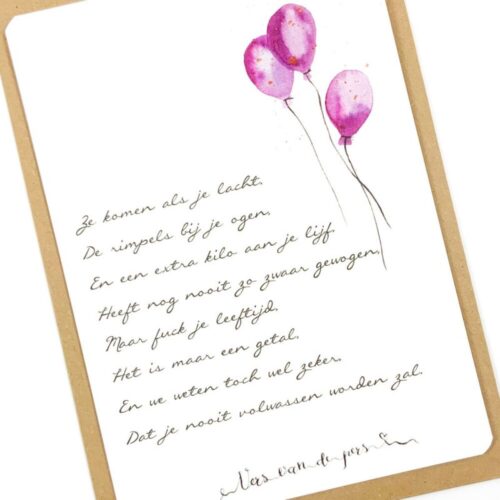 Ze komen als je lacht.
De rimpels bij je ogen.
En een extra kilo aan je lijf.
Heeft nog nooit zo zwaar gewogen.
Maar fuck je leeftijd.
Het is maar een getal.
En we weten toch wel zeker.
Dat je nooit volwassen worden zal.
Vers van de pers